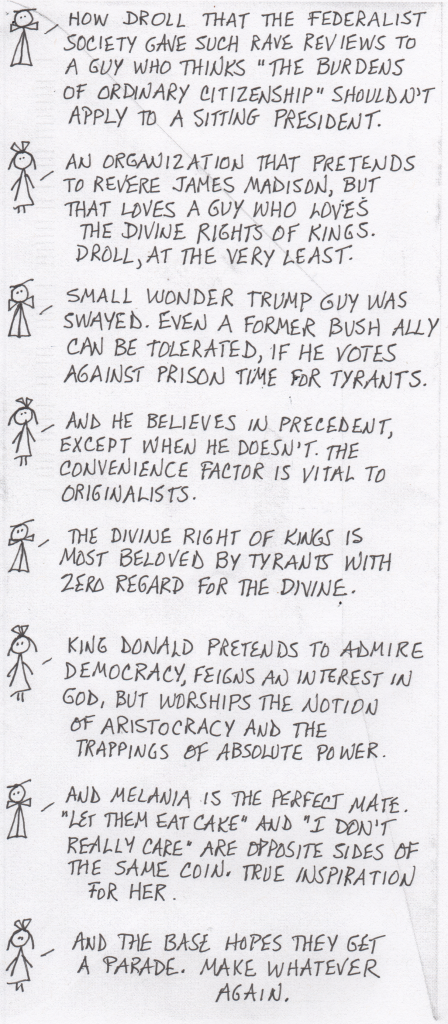 HOW DROLL THAT THE FEDERALIST
SOCIETY GAVE SUCH RAVE REVIEWS TO
A GUY WHO THINKS "THE BURDENS
OF ORDINARY CITIZENSHIP" SHOULDN'T
APPLY TO A SITTING PRESIDENT.
AN ORGANIZATION THAT PRETENDS
TO REVERE JAMES MADISON, BUT
THAT LOVES A GUY WHO LOVES
THE DIVINE RIGHTS OF KINGS.
DROLL, AT THE VERY LEAST.
SMALL WONDER TRUMP GUY WAS
SWAYED. EVEN A FORMER BUSH ALLY
CAN BE TOLERATED, IF HE VOTES
AGAINST PRISON TIME FOR TYRANTS.
AND HE BELIEVES IN PRECEDENT,
EXCEPT WHEN HE DOESN'T. THE
CONVENIENCE FACTOR IS VITAL TO
ORIGINALISTS.
THE DIVINE RIGHT OF KINGS IS
MOST BELOVED BY TYRANTS WITH
ZERO REGARD FOR THE DIVINE.
KING DONALD PRETENDS TO ADMIRE
DEMOCRACY, FEIGNS AN INTEREST IN
GOD, BUT WORSHIPS THE NOTION
OF ARISTOCRACY AND THE
TRAPPINGS OF ABSOLUTE POWER.
AND MELANIA IS THE PERFECT MATE.
"LET THEM EAT CAKE" AND "I DON'T
REALLY CARE" ARE OPPOSITE SIDES OF
THE SAME COIN. TRUE INSPIRATION
FOR HER.
AND THE BASE HOPES THEY GET
A PARADE. MAKE WHATEVER
AGAIN.